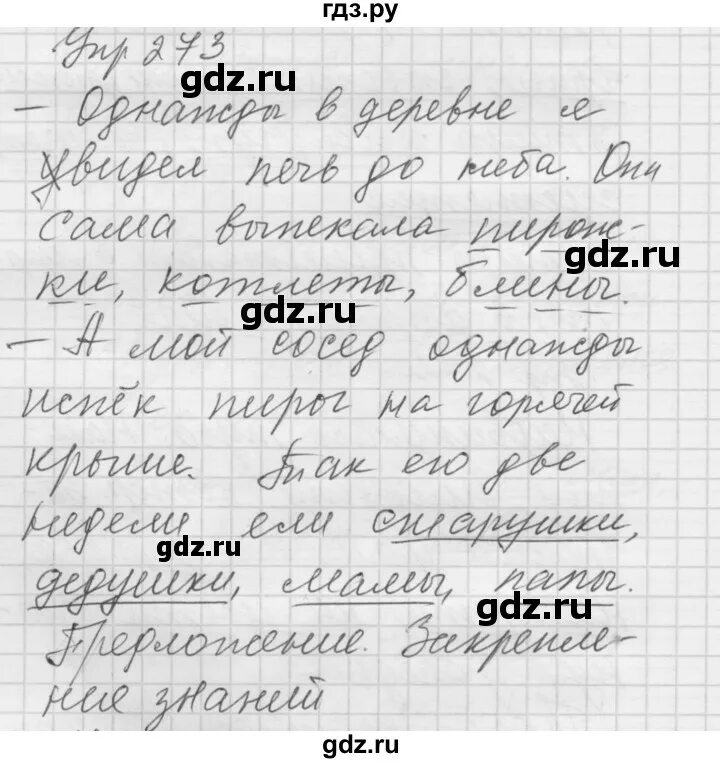 гдз.ру
Упр 273
gdz.ru
– Однажды в деревне я
увидел печь до неба. Она
сама выпекала пирож-
gdz.ru
ки, котлеты, блины.
gdz.ru
– А мой сосед однажды
испёк пирог на горячей
крыше. Так его две
недели ели старушки,
gdz.ru
дедушки, мамы, папы.
gdz.ru
Предложение. Закрепле-
ние знаний
gdz.ru